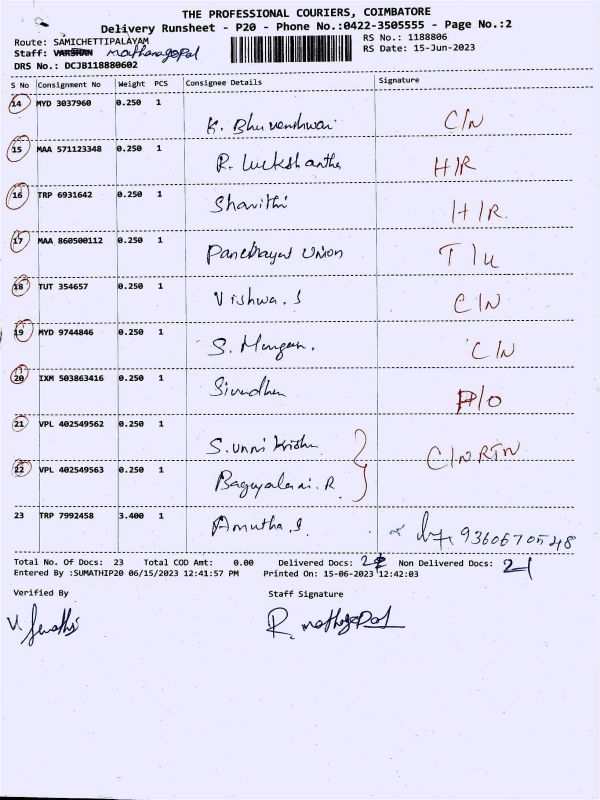 THE PROFESSIONAL COURIERS, COIMBATORE
Delivery Runsheet - P20 - Phone No.:0422-3505555 - Page No.:2
Route: SAMICHETTIPALAYAM
RS No.: 1188806
Staff: VARSHAN mathanagopal
RS Date: 15-Jun-2023
DRS No.: DCJB118880602
S No Consignment No Weight PCS Consignee Details Signature
14 MYD 3037960 0.250 1
K. Bhuvaneshwari C/N
15 MAA 571123348 0.250 1
R. H/R
16 TRP 6931642 0.250 1
Shavithi H/R.
17 MAA 860500112 0.250 1
Panchayat Union T/U
18 TUT 354657 0.250 1
Vishwa. S C/N
19 MYD 9744846 0.250 1
S. C/N
20 IXM 503863416 0.250 1
P/O
21 VPL 402549562 0.250 1
S. unni Krishn C/N RTN
22 VPL 402549563 0.250 1
R.
23 TRP 7992458 3.400 1
Amutha. S 9360670548
Total No. Of Docs: 23 Total COD Amt: 0.00 Delivered Docs: Non Delivered Docs: 21
Entered By :SUMATHIP20 06/15/2023 12:41:57 PM Printed On: 15-06-2023 12:42:03
Verified By Staff Signature